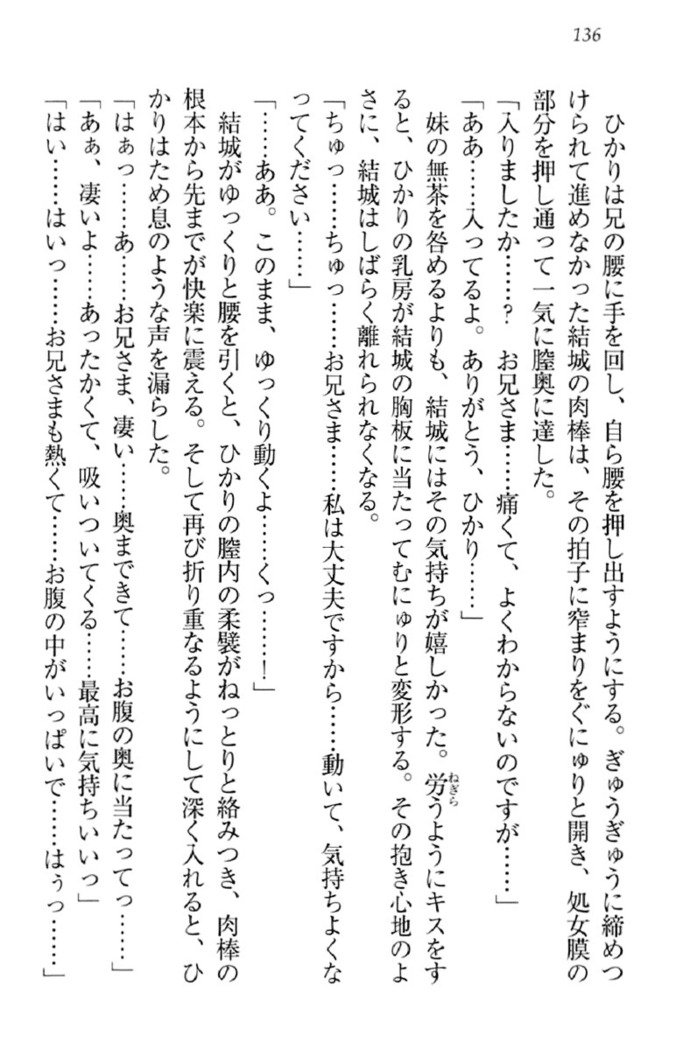 136
ひかりは兄の腰に手を回し、自ら腰を押し出すようにする。ぎゅうぎゅうに締めつ
けられて進めなかった結城の肉棒は、その拍子に窄まりをぐにゅりと開き、処女膜の
部分を押し通って一気に膣奥に達した。
「入りましたか……？　お兄さま……痛くて、よくわからないのですが……」
「ああ……入ってるよ。ありがとう、ひかり……」
妹の無茶を咎めるよりも、結城にはその気持ちが嬉しかった。労うようにキスをす
ねぎら
ると、ひかりの乳房が結城の胸板に当たってむにゅりと変形する。その抱き心地のよ
さに、結城はしばらく離れられなくなる。
「ちゅっ……ちゅっ……お兄さま……私は大丈夫ですから……動いて、気持ちよくな
ってください……」
「……ああ。このまま、ゆっくり動くよ……くっ……！」
結城がゆっくりと腰を引くと、ひかりの膣内の柔襞がねっとりと絡みつき、肉棒の
根本から先までが快楽に震える。そして再び折り重なるようにして深く入れると、ひ
かりはため息のような声を漏らした。
「はぁっ……あ……お兄さま、凄い……奥まできて……お腹の奥に当たってっ……」
「あぁ、凄いよ……あったかくて、吸いついてくる……最高に気持ちいいっ」
「はい……はいっ……お兄さまも熱くて……お腹の中がいっぱいで……はぅっ……」